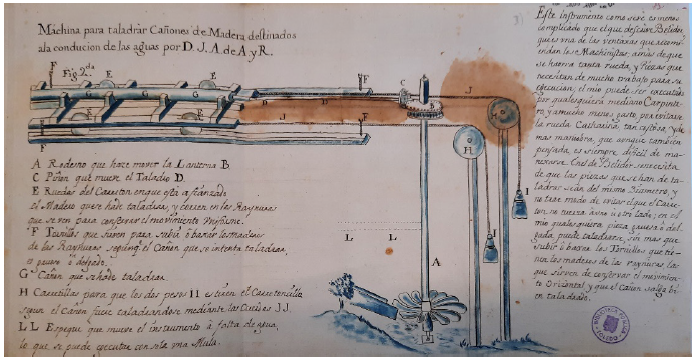 Máchina para taladrar Cañones de Madera destinados
a la conducion de las aguas por D. J. A. de A y R.
Fig. 2.da
A Rodesno que haze mover la Lanterna B.
C Piñon que mueve el Taladro D.
E Ruedas del
el Madero que
que sirven para conservar el movimiento
F Tornillos que sirven para subir ó baxar los maderos
de las Raynuras segun el Cañon que se intenta taladrar,
es grueso ó delgado.
G Cañon que se ha de taladrar
H Carretillas para que los dos pesos I I
segun el Cañon taladrandose mediante las Cuerdas J J.
L L Espeque que mueve el instrumento á falta de agua,
lo que se puede executar con sola una Mula.
Este instrumento como sea menos
complicado que el que descrive Belidor,
que es una de las ventaxas que
los Machinistas, amas de que
se haorra tanta rueda, y piezas que
necesitan de mucho trabajo para su
execucion, el mio puede ser executado
por qualesquiera mediano Carpinte
ro, y á mucho menos gasto por evitarse
la rueda Catharina tan costosa, y de
mas maniobra, que aunque tambien
pensada, es siempre dificil de ma
nexarse. En el de Belidor se necesita
de que las piezas que se han de ta
ladrar sean del mismo Diametro, y
no tuerza a uno u otro lado; en el
mio qualesquiera pieza gruesa ó del
gada, puede taladrarse, sin mas que
subir ó baxar los Tornillos que
los maderos de las raynuras,
que sirven de conservar el movimien
to Orizontal y que el Cañon salga bi
en taladrado.
F
E
E
F
G
G
C
B
D
D
J
J
H
I
I
L
L
A